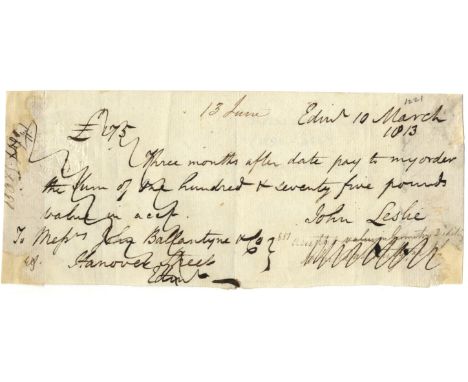 13 June
Edinr 10 March
1813
£175
Three months after date pay to my order
the Sum of One hundred & seventy five pounds
value in acct.
John Leslie
To Messrs Jno Ballantyne & Co
Hanover Street
Edinr